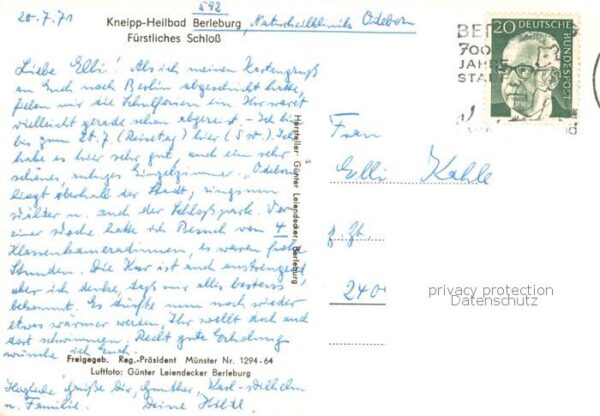 20.7.71
592
Kneipp-Heilbad Berleburg, Naturheilklinik Odeborn
Fürstliches Schloß
Liebe Elli! Als ich meinen Kartengruß
an Euch nach Berlin abgeschickt hatte,
fielen mir die Schulferien ein Ihr wart
vielleicht gerade schon abgereist. - Ich bin
bis zum 28.7. (Reisetag) hier (5 W). Ich
habe es hier sehr gut, auch ein sehr
schönes, ruhiges Einzelzimmer. "Odeborn"
liegt oberhalb der Stadt, ringsum
Wälder u. auch der Schloßpark. Vor
einer Woche hatte ich Besuch von 4
Klassenkameradinnen, es waren frohe
Stunden. Die Kur ist auch anstrengend
aber ich denke, daß mir alles bestens
bekommt. Es dürfte nun noch wieder
etwas wärmer werden, Ihr wollt doch auch
dort schwimmen. Recht gute Erholung
wünsche ich Euch.
Freigegeb. Reg.-Präsident Münster Nr. 1294-64
Luftfoto: Günter Leiendecker Berleburg
Herzliche Grüße Dir, Günther, Karl-Wilhelm
u. Familie. Deine
Hersteller: Günter Leiendecker, Berleburg
BER
700
JAHRE
STADT
20 DEUTSCHE
BUNDESPOST
Frau
Elli Kahle
z. Zt.
240
privacy protection
Datenschutz